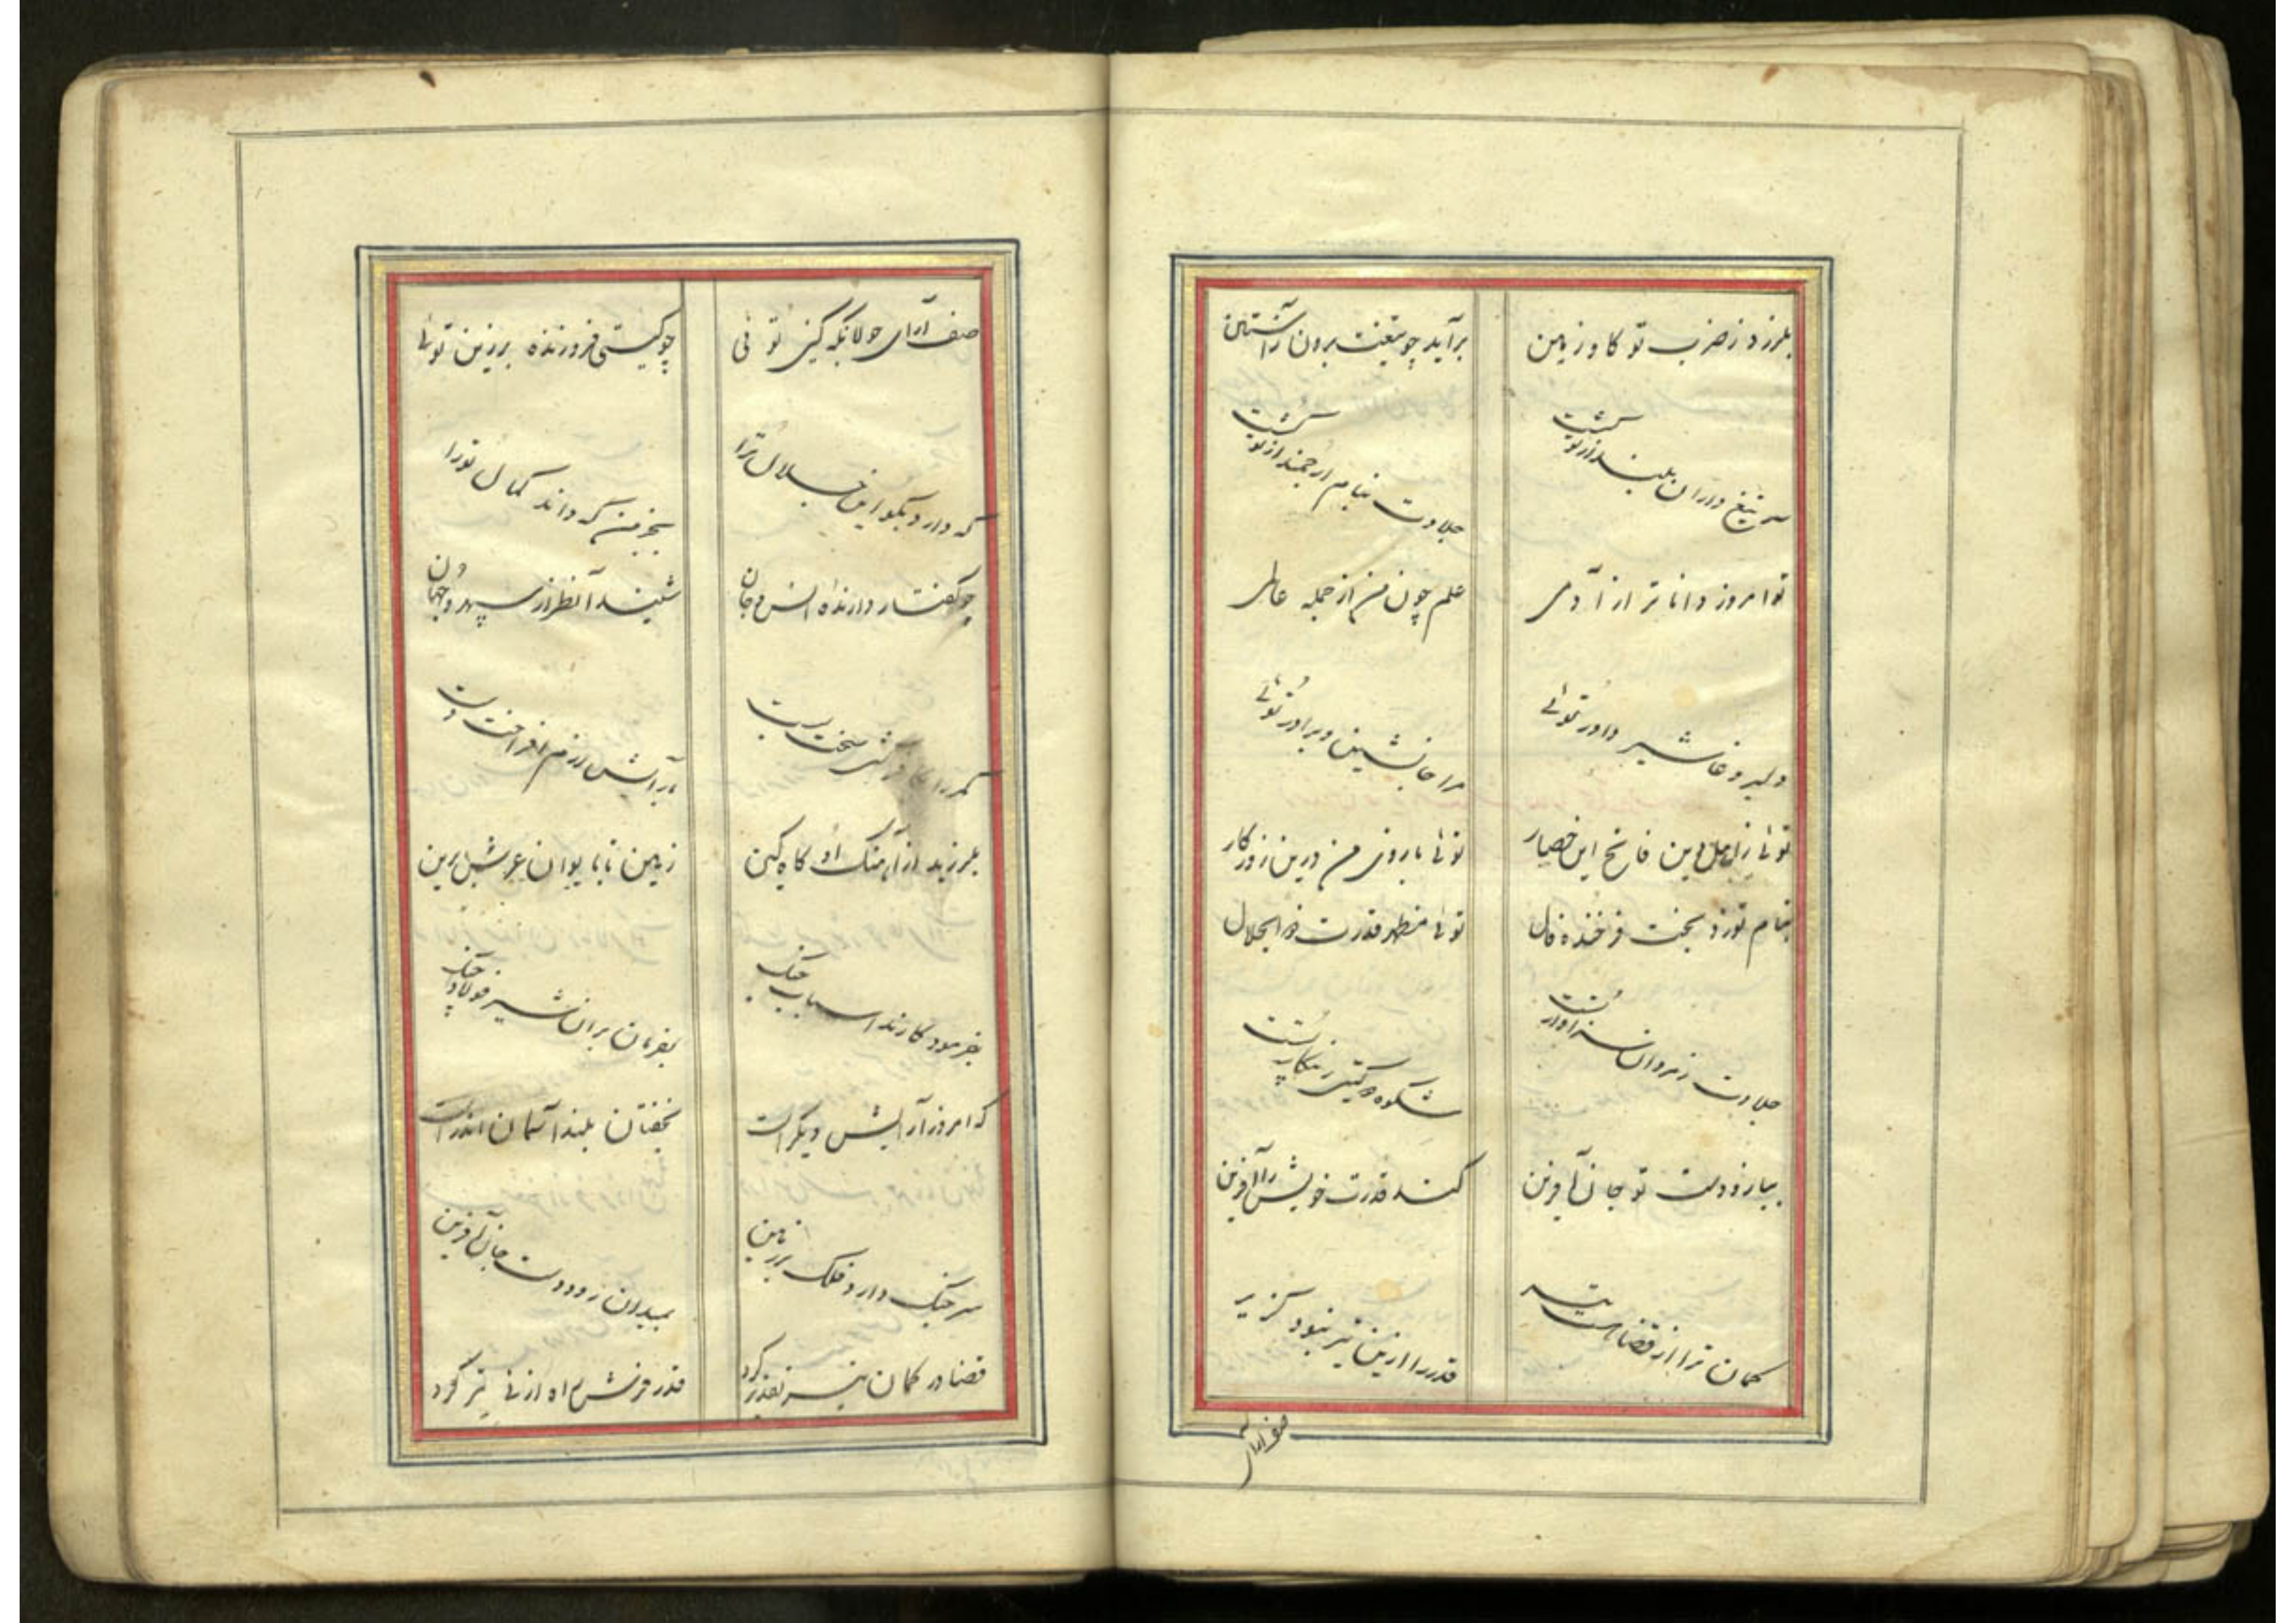 بلرزد ز ضرب تو کاو زمین برآید چو تیغت برون زآستین
سر تیغ داران بلند از تو کشت جلادت بنام ارجمند از تو کشت
تو امروز داناتر از آدمی علم چون من از جمله عالمی
دلیر و غاشیر داور توئی مرا جانشین و برادر توئی
توئی زاهل دین فاتح این حصار توئی بازوی من درین روزکار
بنام تو زد بخت فرخنده فال توئی مظهر قدرت ذوالجلال
جلادت ز مردان سزاوار تست شکوه دو کیتی ز پیکار تست
ببازو و دست تو جان آفرین کند قدرت خویش را آفرین
کمان ترا از قضا هست قدر را ازین تیر نبود کزیر
صف آرای
صف آرای جولانکه کین توئی چو کیتی فروزنده برزین توئی
که دارد بکو این جلال ترا بجز من که داند کمال تورا
چو کفتار دارنده انس و جان شنید آنطراز سپهر و جهان
کمر را کین سخت بست بآرایش رزم افراخت دست
بلرزید از آهنک او کاه کین زمین تا بایوان عرش برین
بفرمود کارند اسباب جنک بفرمان بران شیر فولاد جنک
که امروز آرایش دیکر است بخفتان بلند آسمان اندر است
سر جنک دارد فلک بر زمین بمیدان رود دست جان آفرین
قضا در کمان تیر تقدیر کرد قدر فرش راه از نی تیر کرد